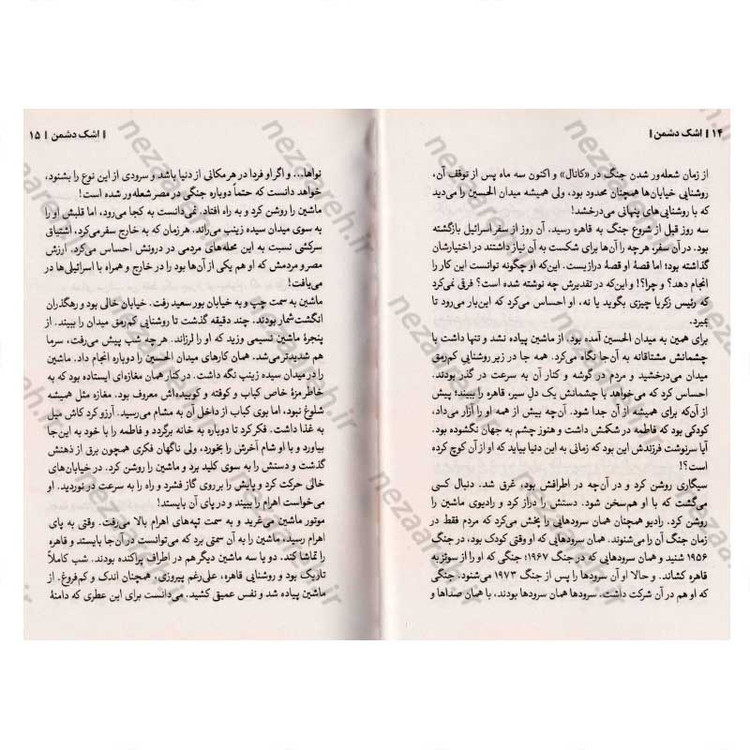 ۱۴ | اشک دشمن |
از زمان شعله‌ور شدن جنگ در «کانال» و اکنون سه ماه پس از توقف آن،
روشنایی خیابان‌ها همچنان محدود بود، ولی همیشه میدان الحسین را می‌دید
که با روشنایی‌های پنهانی می‌درخشد!
سه روز قبل از شروع جنگ به قاهره رسید. آن روز از سفر اسرائیل بازگشته
بود. در آن سفر، هر چه را آن‌ها برای شکست به آن نیاز داشتند در اختیارشان
گذاشته بود؛ اما قصهٔ او قصهٔ درازیست. این‌که او چگونه توانست این کار را
انجام دهد؟ و چرا؟! و این‌که در تقدیرش چه نوشته شده است؟ فرقی نمی‌کرد
که رئیس زکریا چیزی بگوید یا نه، او احساس می‌کرد که این‌بار می‌رود تا
بمیرد.
برای همین به میدان الحسین آمده بود. از ماشین پیاده نشد و تنها داشت با
چشمانش مشتاقانه به آن‌جا نگاه می‌کرد. همه جا در زیر روشنایی کم‌رمق
میدان می‌درخشید و مردم از گوشه و کنار آن به سرعت در گذر بودند.
احساس کرد که می‌خواهد با چشمانش یک دل سیر، قاهره را ببیند؛ پیش
از آن‌که برای همیشه از آن جدا شود. آن‌چه بیش از همه او را آزار می‌داد،
کودکی بود که فاطمه در شکمش داشت و هنوز چشم به جهان نگشوده بود.
آیا سرنوشت فرزندش این بود که زمانی به این دنیا بیاید که او از آن کوچ کرده
است؟!
سیگاری روشن کرد و در آن‌چه در اطرافش بود، غرق شد. دنبال کسی
می‌گشت که با او هم‌سخن شود. دستش را دراز کرد و رادیوی ماشین را
روشن کرد. رادیو همچنان همان سرودهایی را پخش می‌کرد که مردم فقط در
زمان جنگ آن را می‌شنوند. همان سرودهایی که او در کودکی بود، در جنگ
۱۹۵۶ شنید و همان سرودهایی که در جنگ ۱۹۶۷؛ جنگی که او را از سوئز به
قاهره کشاند. و حالا او آن سرودها را پس از جنگ ۱۹۷۳ می‌شنود. جنگی
که او هم در آن شرکت داشت. سرودها همان سرودها بودند، با همان صداها و
| اشک دشمن | ۱۵
نواها... و اگر او فردا در هر مکانی از دنیا باشد و سرودی از این نوع را بشنود،
خواهد دانست که حتماً دوباره جنگی در مصر شعله‌ور شده است!
ماشین را روشن کرد و به راه افتاد. نمی‌دانست به کجا می‌رود، اما قلبش او را
به سوی میدان سیده زینب می‌راند. هر زمان که به خارج سفر می‌کرد، اشتیاقی
سرکشی نسبت به این محله‌های مردمی در درونش احساس می‌کرد. ارزش
مصر و مردمش که او هم یکی از آن‌ها بود را در خارج و همراه با اسرائیلی‌ها در
می‌یافت!
ماشین به سمت چپ و به خیابان بور سعید رفت. خیابان خالی بود و رهگذران
انگشت‌شمار بودند. چند دقیقه گذشت تا روشنایی کم‌رمق میدان را ببیند. از
پنجرهٔ ماشین نسیمی وزید که او را لرزاند. هر چه شب پیش می‌رفت، سرما
هم شدیدتر می‌شد. همان کارهای میدان الحسین را دوباره انجام داد. ماشین
را در میدان سیده زینب نگه داشت. در کنار همان مغازه‌ای ایستاده بود که به
خاطر مزهٔ خاص کباب و کوفته و کوبیده‌اش معروف بود. مغازه مثل همیشه
شلوغ نبود، اما بوی کباب از داخل آن به مشام می‌رسید. آرزو کرد کاش میل
به غذا داشت. فکر کرد تا دوباره به خانه برگردد و فاطمه را با خود به این‌جا
بیاورد و با او شام آخرش را بخورد، ولی ناگهان فکری همچون برق از ذهنش
گذشت و دستش را به سوی کلید برد و ماشین را روشن کرد. در خیابان‌های
خالی حرکت کرد و پایش را بر روی گاز فشرد و راه را به سرعت در نوردید. او
می‌خواست اهرام را ببیند و در پای آن بایستد!
موتور ماشین می‌غرید و به سمت تپه‌های اهرام بالا می‌رفت. وقتی به پای
اهرام رسید، ماشین را به آن سمتی برد که می‌توانست در آن‌جا بایستد و قاهره
را تماشا کند. دو یا سه ماشین دیگر هم در اطراف پراکنده بودند. شب کاملاً
تاریک بود و روشنایی قاهره، علی‌رغم پیروزی، همچنان اندک و کم‌فروغ. از
ماشین پیاده شد و نفس عمیق کشید. می‌دانست برای این عطری که دامنهٔ
nezaareh.ir